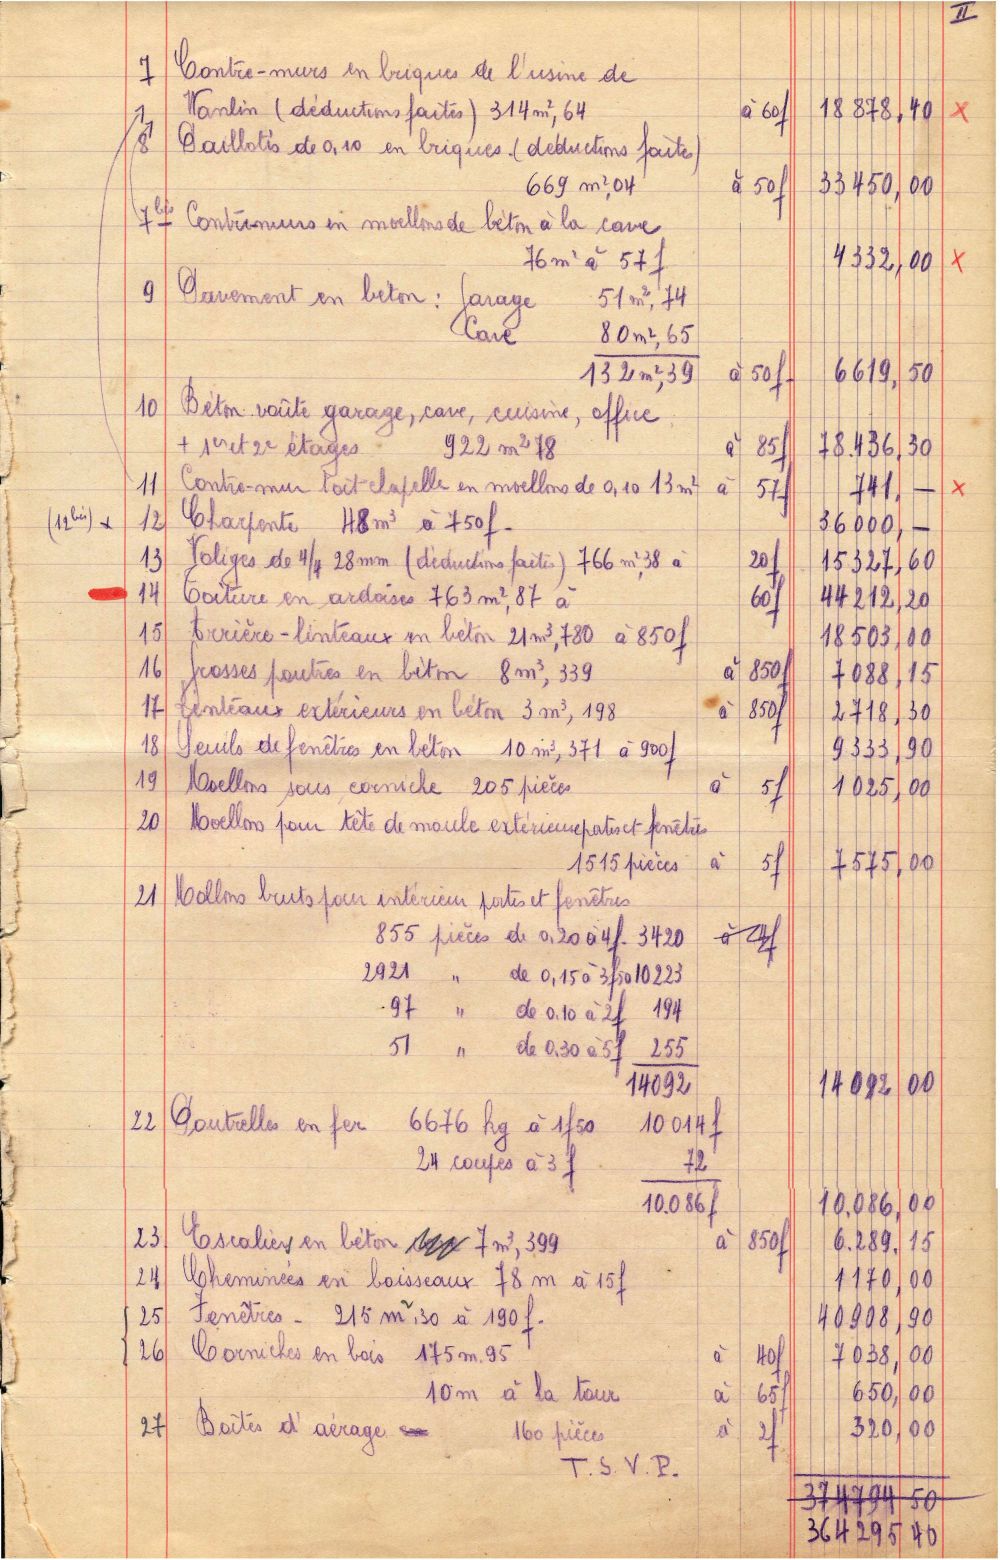 II
7 Contre-murs en briques de l'usine de
Wanlin (déductions faites) 314 m², 64 à 60f 18 878,40 x
8 Paillotis de 0,10 en briques (déductions faites)
669 m², 04 à 50f 33450,00
7bis Contre-murs en moellons de béton à la cave
76 m² à 57f 4332,00 x
9 Pavement en béton : garage 51 m², 74
Cave 80 m², 65
132 m², 39 à 50f 6619,50
10 Béton voûte garage, cave, cuisine, office
+ 1er et 2e étages 922 m² 78 à 85f 78.436,30
11 Contre-mur toit chapelle en moellons de 0,10 13 m² à 57f 741, — x
(12bis) x 12 Charpente 48 m³ à 750f - 36000, —
13 Voliges de 4/4 28mm (déductions faites) 766 m², 38 à 20f 15327,60
14 Toiture en ardoises 763 m², 87 à 60f 44212,20
15 Arrière-linteaux en béton 21 m³, 780 à 850f 18503,00
16 Grosses poutres en béton 8 m³, 339 à 850f 7088,15
17 Linteaux extérieurs en béton 3 m³, 198 à 850f 2718,30
18 Seuils de fenêtres en béton 10 m³, 371 à 900f 9333,90
19 Moellons sous corniche 205 pièces à 5f 1025,00
20 Moellons pour tête de moule extérieure portes et fenêtres
1515 pièces à 5f 7575,00
21 Mollons bruts pour intérieur portes et fenêtres
855 pièces de 0,20 à 4f. 3420 à 4f
2921 " de 0,15 à 3f50 10223
97 " de 0.10 à 2f 194
51 " de 0.30 à 5f 255
14092 14092 00
22 Poutrelles en fer 6676 kg à 1f50 10014f
24 coupes à 3f 72
10.086f 10.086,00
23 Escaliers en béton 7 m³, 399 à 850f 6.289.15
24 Cheminées en boisseaux 78 m à 15f 1170,00
25 Fenêtres - 215 m², 30 à 190f. 40908,90
26 Corniches en bois 175 m. 95 à 40f 7038,00
10 m à la tour à 65f 650,00
27 Boîtes d'aérage 160 pièces à 2f 320,00
T. S. V. P.
374794 50
364295 40